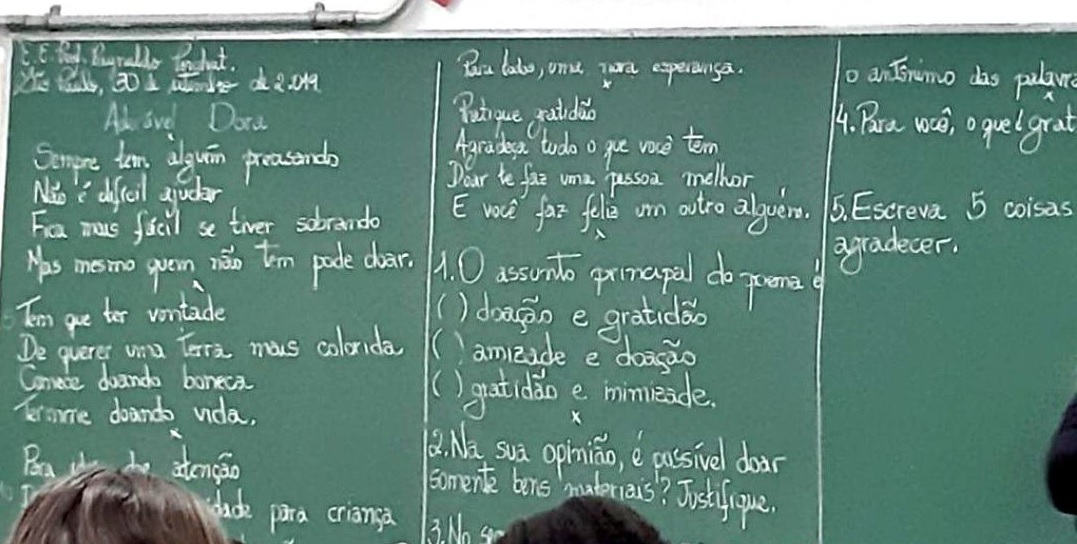 E.E. Prof. Reynaldo Porchat.
São Paulo, 30 de setembro de 2.019
Adorável Dora
Sempre tem alguém precisando
Não é difícil ajudar
Fica mais fácil se tiver sobrando
Mas mesmo quem não tem pode doar.
Tem que ter vontade
De querer uma Terra mais colorida
Comece doando boneca
Termine doando vida.
Para atenção
para criança
Para todos, uma nova esperança.
Pratique gratidão
Agradeça tudo o que você tem
Doar te faz uma pessoa melhor
E você faz feliz um outro alguém.
1. O assunto principal do poema é
( ) doação e gratidão
( ) amizade e doação
( ) gratidão e inimizade.
2. Na sua opinião, é possível doar
somente bens materiais? Justifique.
3. No
o antônimo das palavra
4. Para você, o que é grat
5. Escreva 5 coisas
agradecer.